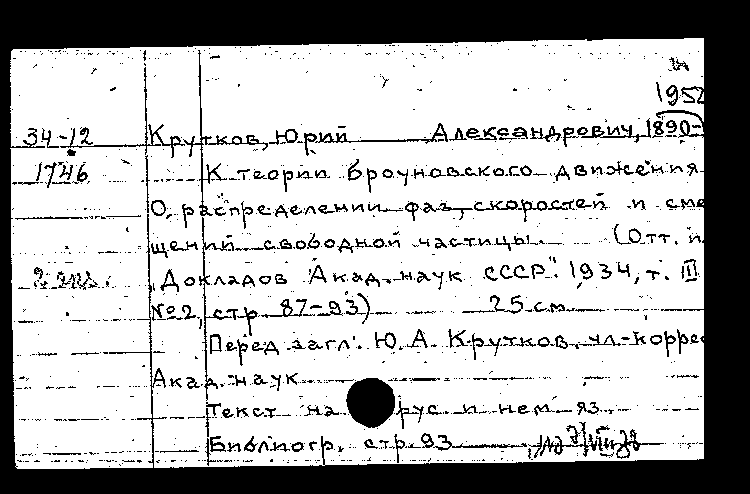 1952
34-12 Крутков, Юрий Александрович, 1890-
1746 К теории Броуновского движения
О распределении фаз, скоростей и сме
щений свободной частицы. (Отт. и
2 экз. "Докладов Акад. наук СССР". 1934, т. III
№2, стр. 87-93) 25 см
Перед загл.: Ю. А. Крутков, чл.-корре
Акад. наук
Текст на рус и нем яз.
Библиогр. стр. 93